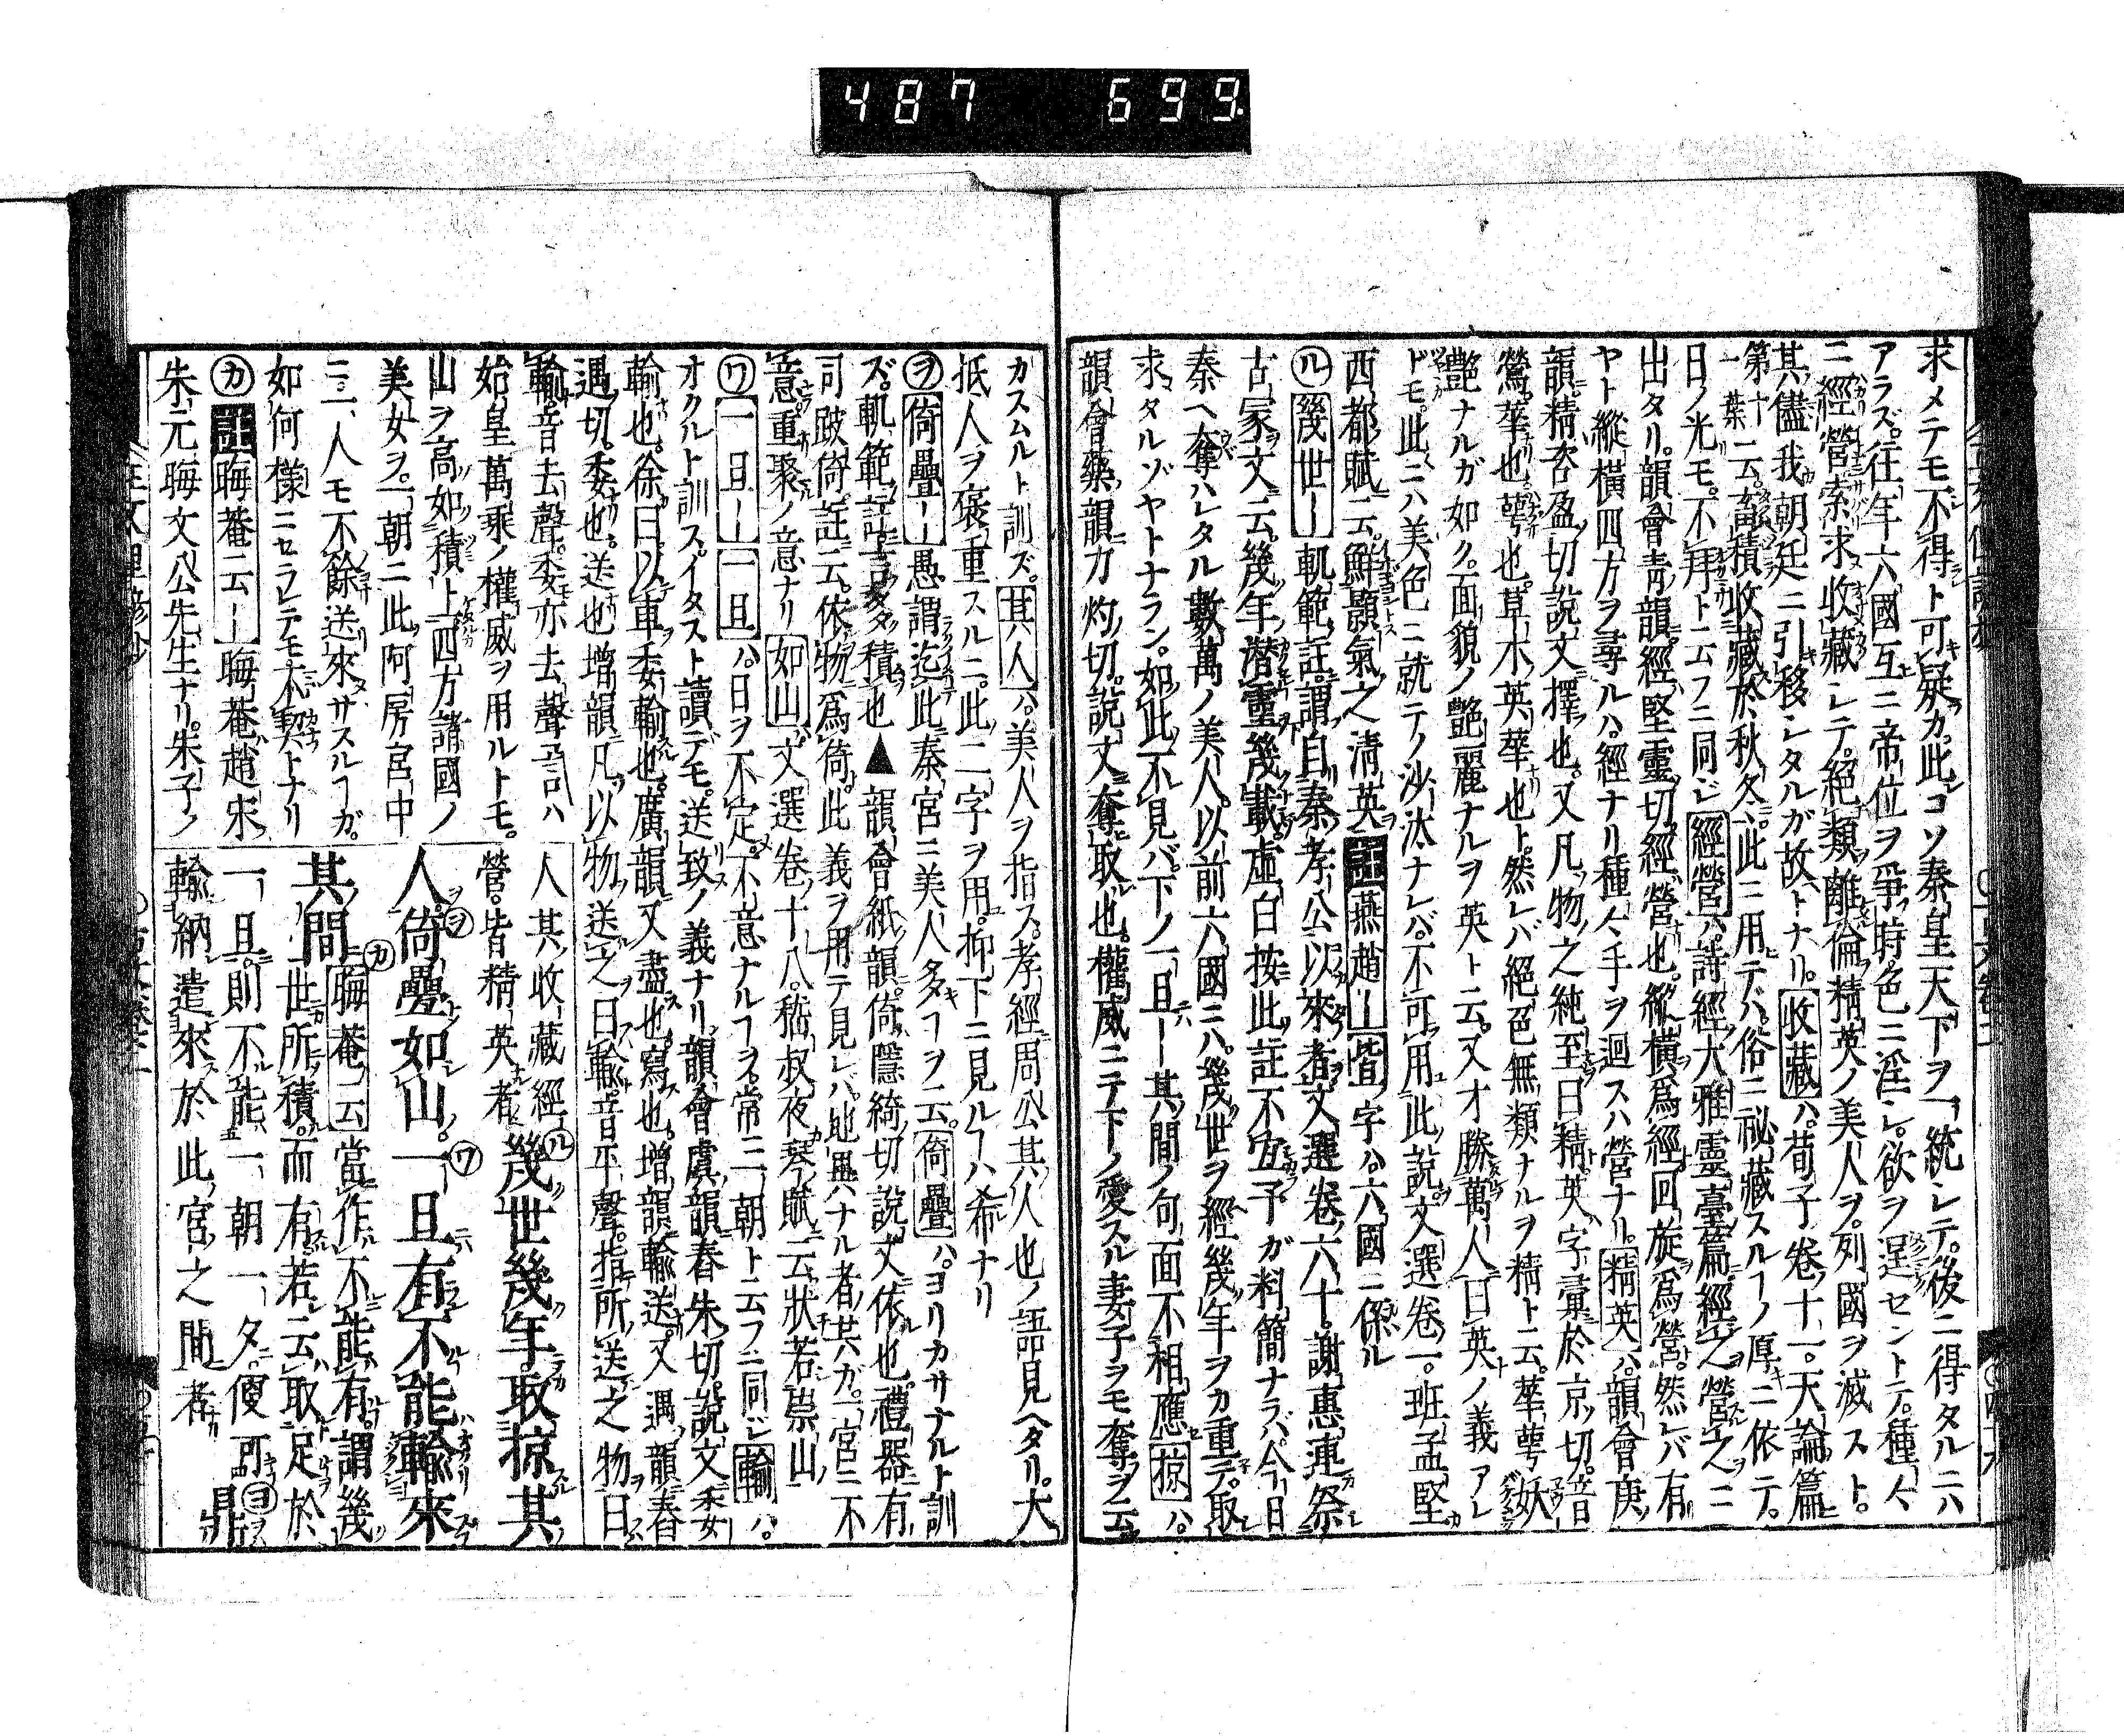 487 699
求メテモ不得ト可疑カ。此コソ秦皇天下ヲ一統シテ。後ニ得タルニハ
アラズ。往年六國互ニ帝位ヲ爭時。色ニ淫シ。欲ヲ逞セントテ。種々
ニ經營索求收藏シテ。絕類離倫精英ノ美人ヲ。列國ヲ滅スト。
其儘我朝廷ニ引移シタルガ故トナリ。收藏ハ。荀子卷十一。天論篇
第十一葉云。畜積收藏於秋冬。此ニ用テハ。俗ニ祕藏スルヿノ厚キニ依テ。
日ノ光モ。不拜ト云フニ同ジ 經營ハ。詩經大雅靈臺篇。經之營之ニ
出タリ。韻會靑韻。經堅靈切。經營也。縱橫爲經。回旋爲營。然レバ有
ヤト縱橫四方ヲ尋ルハ。經ナリ種々手ヲ迴スハ營ナリ。精英ハ。韻會庚
韻精咨盈切說文擇也。又凡物之純至曰精英字彙於京切。音
鶯。華也。萼也。草木英華也ト。然レバ絕色無類ナルヲ精ト云。華萼妖
艷ナルガ如ク。面貌ノ艷麗ナルヲ英ト云。又才勝萬人曰英ノ義アレ
ドモ。此ニハ美色ニ就テノ沙汰ナレバ。不可用此說。文選卷一。班孟堅
西都賦云。鮮顥氣之淸英 註燕趙ー皆字ハ。六國ニ係ル
ル 幾世ー 軌範註。謂自秦孝公以來者。文選卷六十。謝惠連祭
古冢文云。幾年潛靈幾載。虛白按此註不宜。予ガ料簡ナラバ。今日
秦ヘ奪ハレタル數萬ノ美人。以前六國ニハ。幾世ヲ經幾年ヲカ重テ。取
求タルゾヤトナラン。如此不見バ。下ノ一旦ー其間ノ句面不相應 掠ハ。
韻會藥韻力灼切。說文奪取也。權威ニテ下ノ愛スル妻子ヲモ奪ヲ云
カスムルト訓ズ。其人ハ。美人ヲ指ス。孝經周公其人也ノ語見ヘタリ。大
抵人ヲ褒重スルニ。此二字ヲ用。抑下ニ見ルヿハ希ナリ
ヲ 倚疊ー 愚謂迄此秦宮ニ美人多キヿヲ云。倚疊ハ。ヨリカサナルト訓
ズ。軌範註。言多積也▲韻會紙韻。倚隱綺切說文依也。禮器有
司跛倚。註云。依物爲倚。此義ヲ用テ見レバ。地興ナル者其ガ。一宮ニ不
意重聚ノ意ナリ 如山 文選卷十八。嵇叔夜琴賦云狀若崇山
ワ 一旦ー 一旦ハ。日ヲ不定。不意ナルヿヲ。常ニ一朝ト云フニ同ジ 輸ハ。
オクルト訓ス。イタスト讀デモ。送致ノ義ナリ。韻會虞韻舂朱切。說文委
輸也。徐曰。以車委輸也。廣韻又盡也。寫也。增韻輸送。又遇韻舂
遇切。委也。送也增韻凡以物送之曰輸。音平聲。指所送之物曰
輸。音去聲。委亦去聲 言ハ
始皇萬乘ノ權威ヲ用ルトモ。
山ヲ高如積上四方諸國ノ
美女ヲ。一朝ニ此阿房宮中
ニ一人モ不餘送來サスルヿガ。
如何樣ニセラレテモ不契トナリ
カ 註晦菴云ー 晦菴趙宋
朱元晦文公先生ナリ。朱子ノ
人其收藏經
營。皆精英者ル幾世幾年取掠其
人。ヲ倚疊如山。ワ一旦有不能輸來
其間カ 晦菴云當作不能有。謂幾
世所積。而有若云取足於
一旦。則不能。一朝一夕。便可ヨ鼎
輸納遣來於此宮之間者